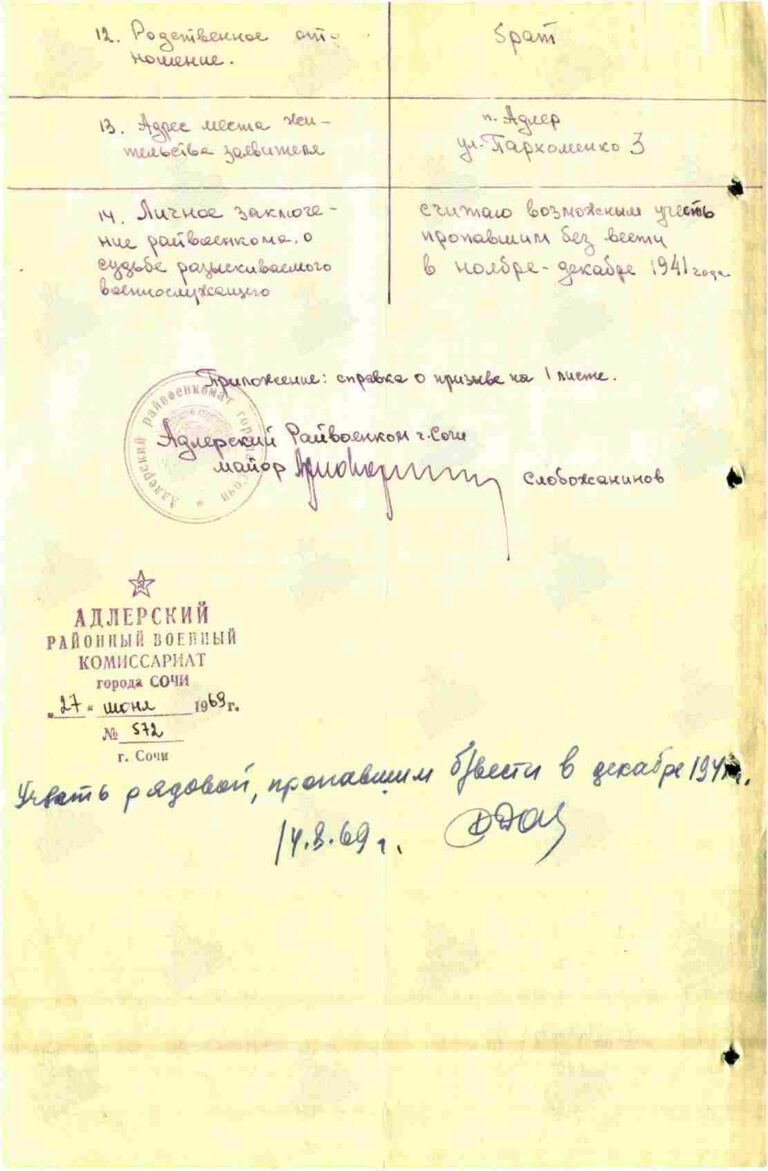 12. Родственное отношение.
брат
13. Адрес места жительства заявителя
п. Адлер
ул. Пархоменко 3
14. Личное заключение райвоенкома о
судьбе разыскиваемого
военнослужащего
считаю возможным учесть
пропавшим без вести
в ноябре-декабре 1941 года
Приложение: справка о призыве на 1 листе.
Адлерский райвоенкомат города Сочи
Адлерский Райвоенком г. Сочи
майор
Слобожанинов
АДЛЕРСКИЙ
РАЙОННЫЙ ВОЕННЫЙ
КОМИССАРИАТ
города СОЧИ
"27" июня 1969 г.
№ 572
г. Сочи
Учесть рядовой, пропавшим б/вести в декабре 1941 г.
14.8.69 г.